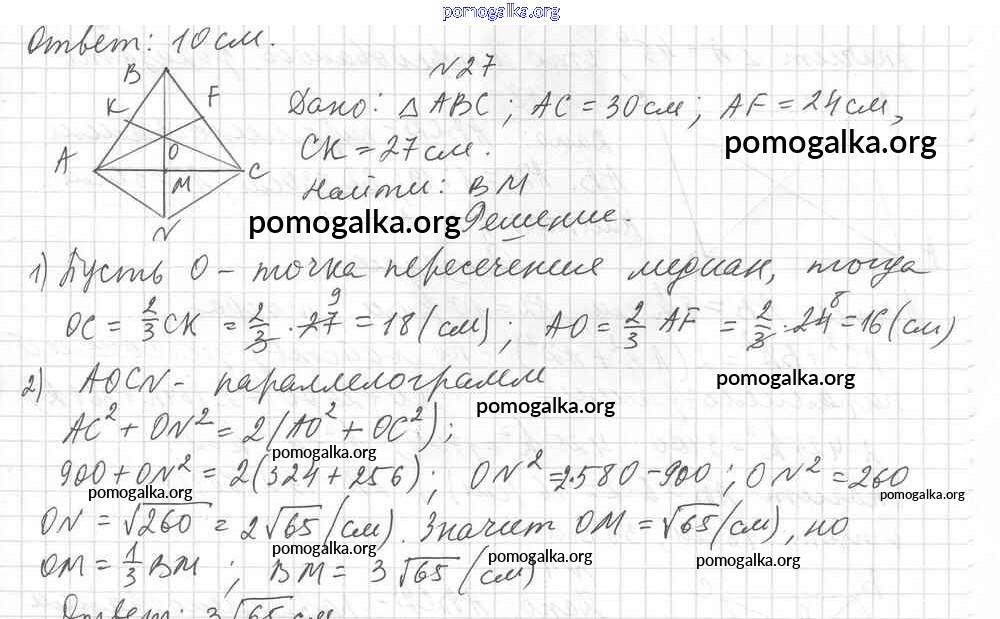 pomogalka.org
Ответ: 10 см.
N 27
B
K F
A O C
M
N
Дано: △ ABC; AC = 30 см; AF = 24 см,
pomogalka.org
CK = 27 см.
Найти: BM
pomogalka.org
Решение.
1) Пусть O - точка пересечения медиан, тогда
OC = 2/3 CK = 2/3 · 27 9 = 18 (см); AO = 2/3 AF = 2/3 · 24 8 = 16 (см)
2) AOCN - параллелограмм
pomogalka.org
pomogalka.org
AC² + ON² = 2(AO² + OC²);
pomogalka.org
900 + ON² = 2(324 + 256); ON² = 2·580 - 900; ON² = 260
pomogalka.org
pomogalka.org
ON = √260 = 2√65 (см). Значит OM = √65 (см), но
pomogalka.org pomogalka.org pomogalka.org
OM = 1/3 BM; BM = 3√65 (см)
Ответ: 3√65 см